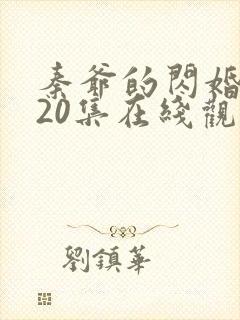 秦爺的閃婚
20集在綫觀
劉鎮華